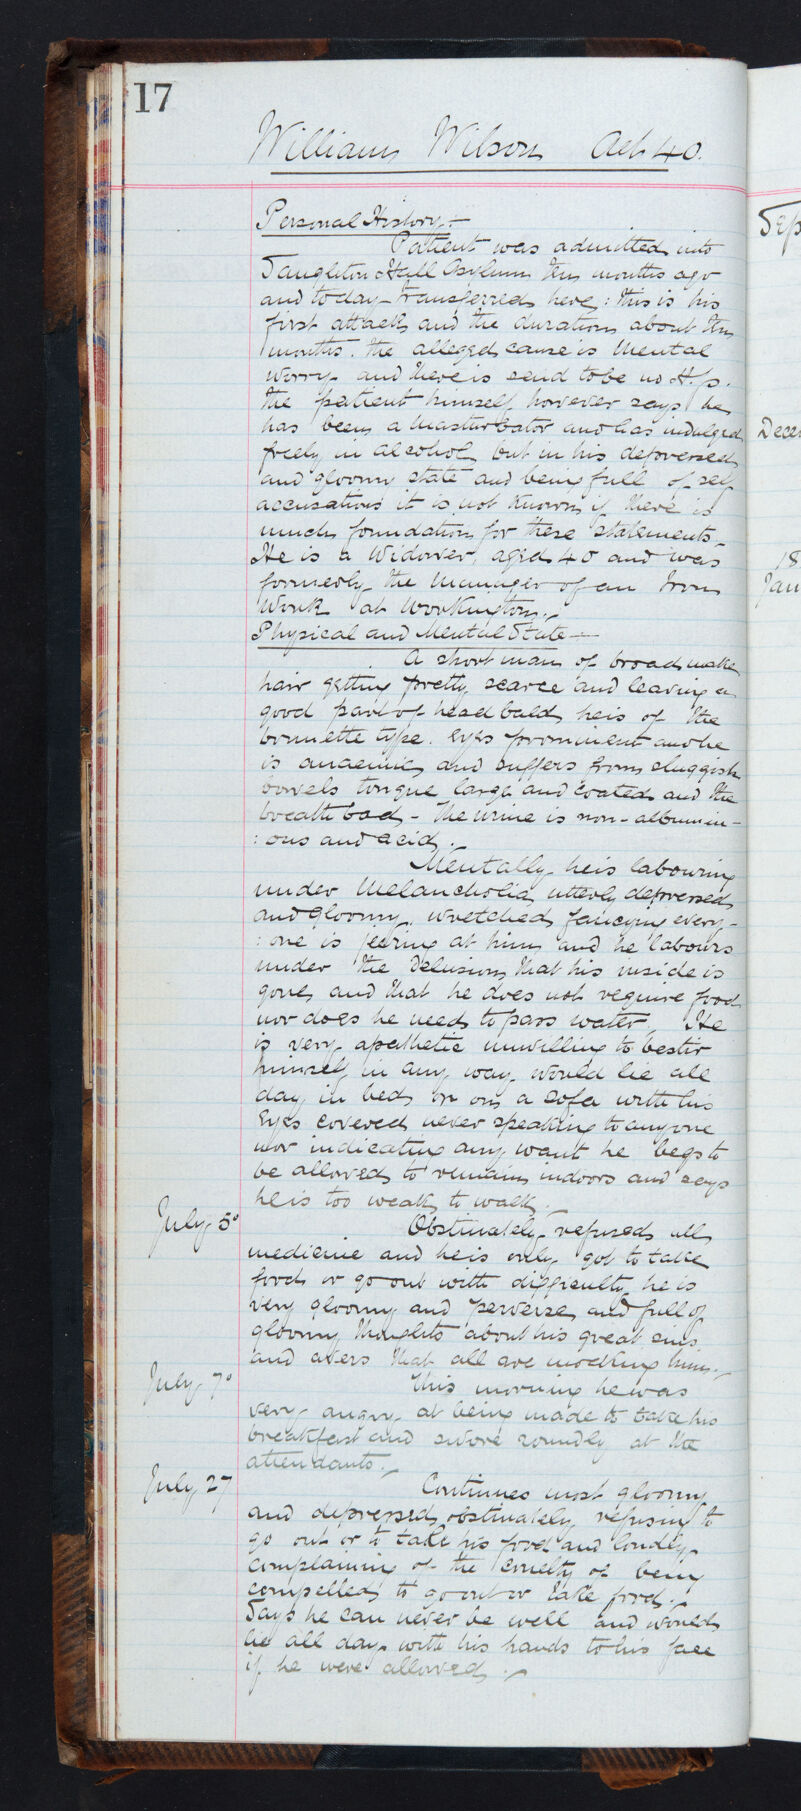 17
William Wilson Aet 40.
Personal History:-
Patient was admitted into
Saughton Hall Asylum ten months ago
and today transferred here: this is his
first attack and the duration about ten
months. the alleged cause is Mental
worry and there is said to be no H.p.
the patient himself however says he
has been a Masturbator and has indulged
freely in alcohol but in his depressed
and gloomy state and being full of self
accusations it is not known if there is
much foundation for these statements.
He is a Widower, aged 40 and was
formerly the Manager of an Iron
Work at Workington.
Physical and Mental State -
A short man of broad make
hair getting pretty scarce and leaving a
good part of head bald, he is of the
brunette type. Eyes prominent and he
is anaemic and suffers from sluggish
bowels tongue large and coated and the
breath bad - The urine is non-albumin-
:ous and acid.
Mentally he is labouring
under Melancholia utterly depressed
and gloomy, wretched fancying every-
:one is jeering at him and he labours
under the Delusions that his inside is
gone, and that he does not require food
nor does he need to pass water. He
is very apathetic unwilling to bestir
himself in any way, would lie all
day in bed or on a sofa with his
Eyes covered never speaking to anyone
nor indicating any want he begs to
be allowed to remain indoors and says
he is too weak to walk.
July 5° Obstinately refused all
medicine and he is only got to take
food or go out with difficulty, he is
very gloomy and perverse, and full of
gloomy thoughts about his great sins
and avers that all are mocking him.
July 7° This morning he was
very angry at being made to take his
breakfast and swore roundly at the
attendants.
July 27 Continues most gloomy
and depressed, obstinately refusing to
go out or to take his food and loudly
complaining of the cruelty of being
compelled to go out or take food.
Says he can never be well and would
lie all day with his hands to his face
if he were allowed.
Sep
Decem
18
Jan